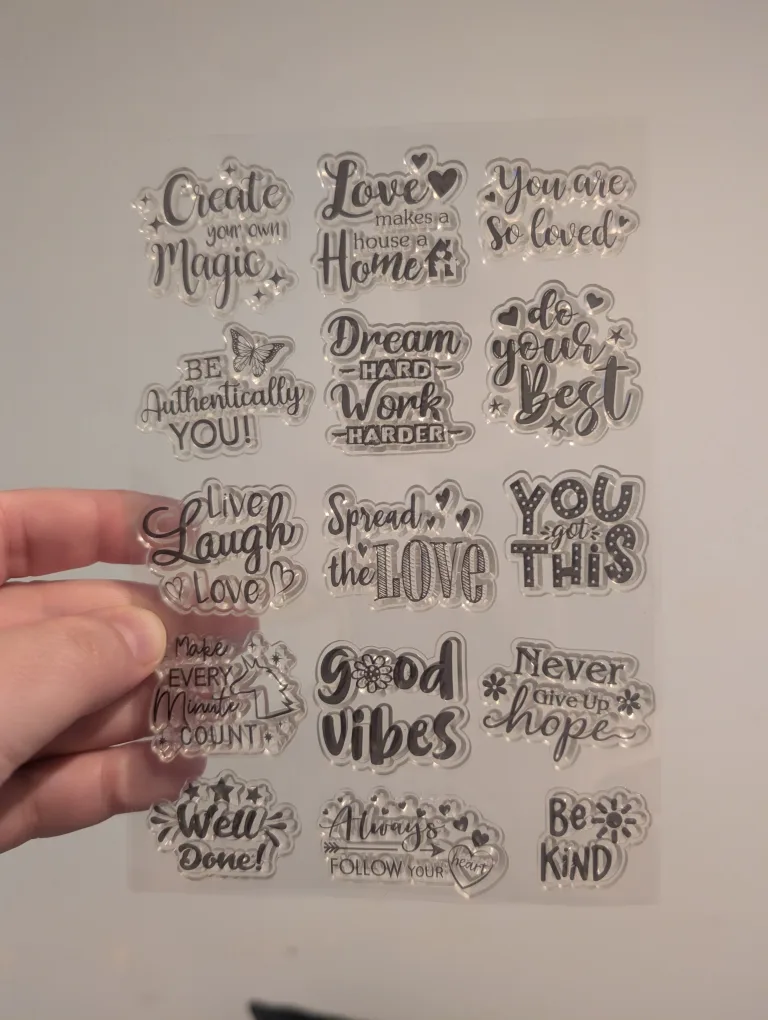 Create
your own
Magic
Love
makes a
house a
Home
You are
So loved
BE
Authentically
YOU!
Dream
HARD
Work
HARDER
do
your
Best
Live
Laugh
Love
Spread
the LOVE
YOU
got
THiS
Make
EVERY
Minute
COUNT
good
vibes
Never
Give Up
hope
Well
Done!
Always
FOLLOW YOUR heart
Be
KiND